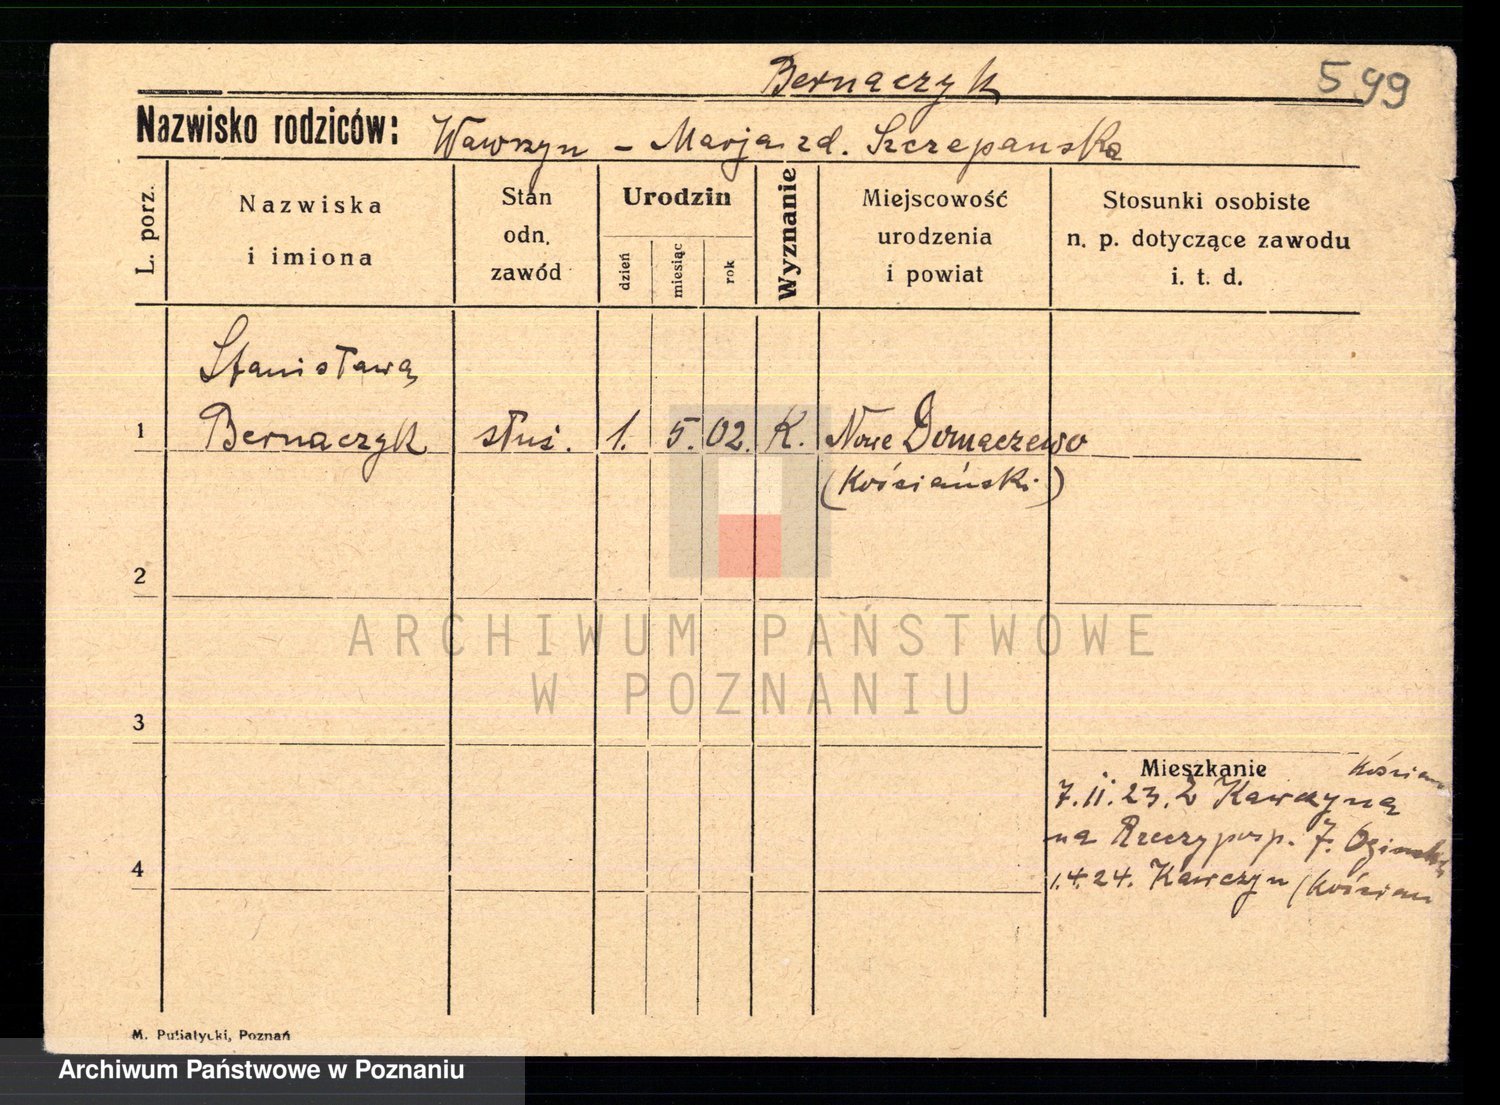 Bernaczyk
599
Nazwisko rodziców: Wawrzyn - Marja zd. Szczepanska
L. porz.
Nazwiska
i imiona
Stan
odn.
zawód
Urodzin
dzień
miesiąc
rok
Wyznanie
Miejscowość
urodzenia
i powiat
Stosunki osobiste
n. p. dotyczące zawodu
i. t. d.
Stanisława
1 Bernaczyk służ. 1. 5. 02. K. Nowe Domaczewo
(Kościański)
2
3
4
ARCHIWUM PAŃSTWOWE
W POZNANIU
Mieszkanie
7.11.23. Z Kawczyna
na Rzeczyposp. 7.
1.4.24. Kawczyn (Kościan
M. Putiatycki, Poznań
Archiwum Państwowe w Poznaniu